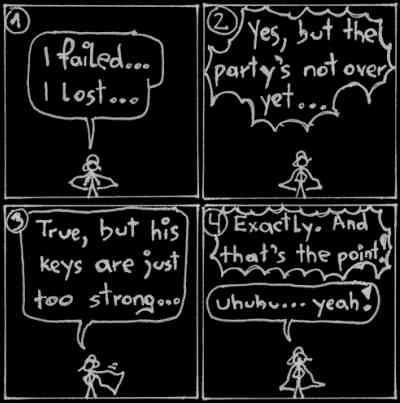 1
I failed...
I lost...
2.
Yes, but the
party's not over
yet...
3
True, but his
keys are just
too strong...
4
Exactly. And
that's the point!
uhuhu... yeah!